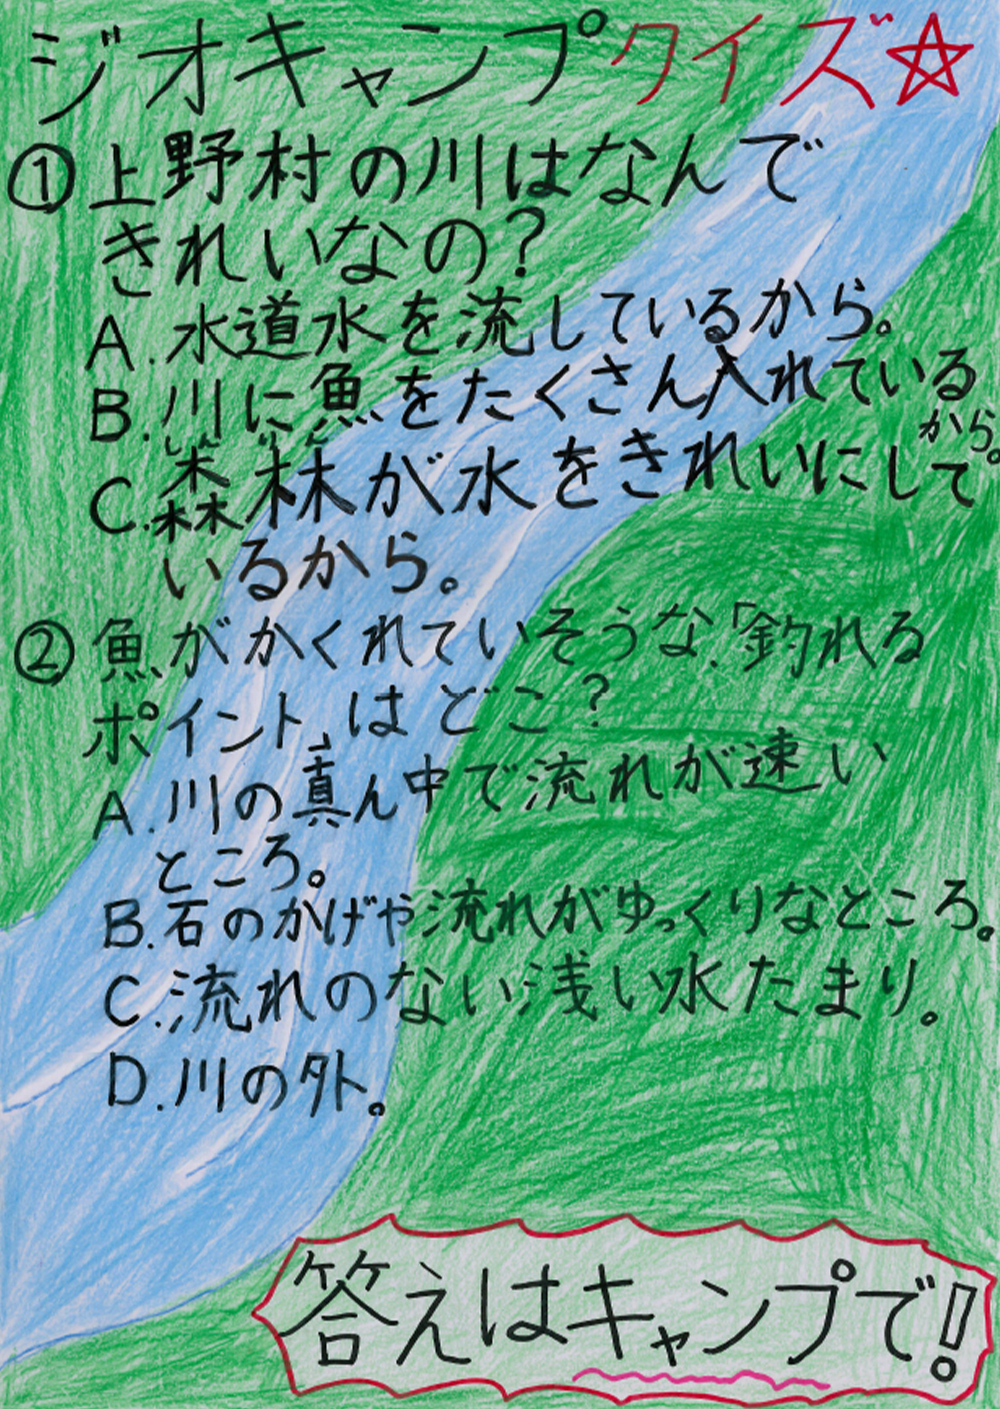 ジオキャンプクイズ☆
①上野村の川はなんで
きれいなの？
A.水道水を流しているから。
B.川に魚をたくさん入れている
から。
しん りん
C.森林が水をきれいにして
いるから。
②魚がかくれていそうな、「釣れる
ポイント」はどこ？
A.川の真ん中で流れが速い
ところ。
B.石のかげや流れがゆっくりなところ。
C.流れのない浅い水たまり。
D.川の外。
答えはキャンプで!